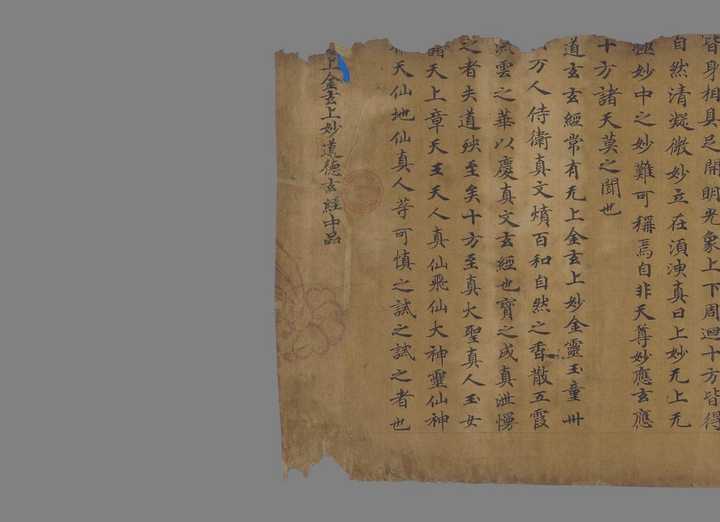 皆身相具足開明光象上下周迴十方皆得
自然清凝微妙立在湏洟真曰上妙无上无
極妙中之妙難可稱焉自非天尊妙應玄應
十方諸天莫之聞也
道玄玄經常有无上金玄上妙金靈玉童卅
万人侍衛真文燌百和自然之香散五霞
流雲之華以慶真文玄經也寶之成真泄慢
之者失道殃至矣十方至真大聖真人玉女
諸天上章天王天人真仙飛仙大神靈仙神
天仙地仙真人等可慎之誡之誡之者也
上金玄上妙道德玄經中品